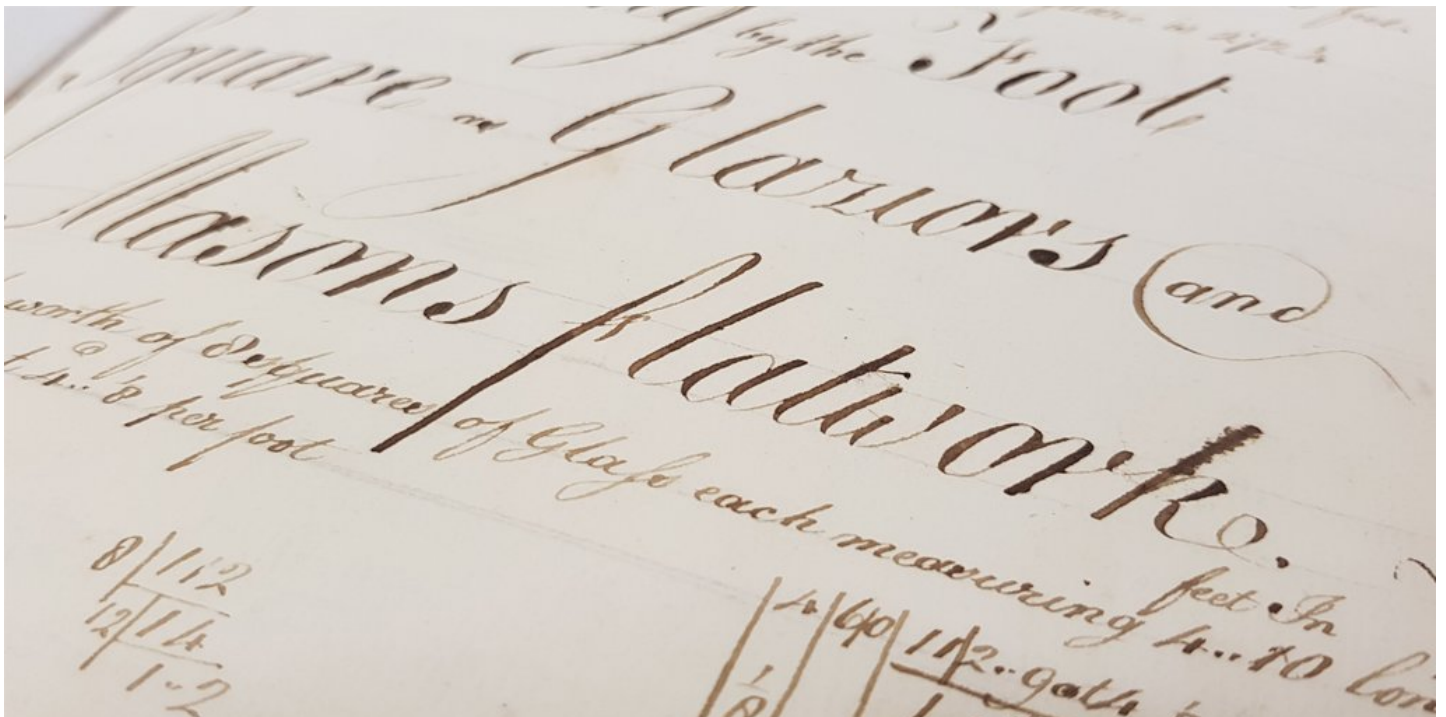 by the Foot,
Square or Glaziors and
Masons flatwork.
feet In
worth of 8 squares of Glass each measuring 4..10 lon
8 per foot
8/112
12/14
1..2
4 60 112..9 at 4
1
8